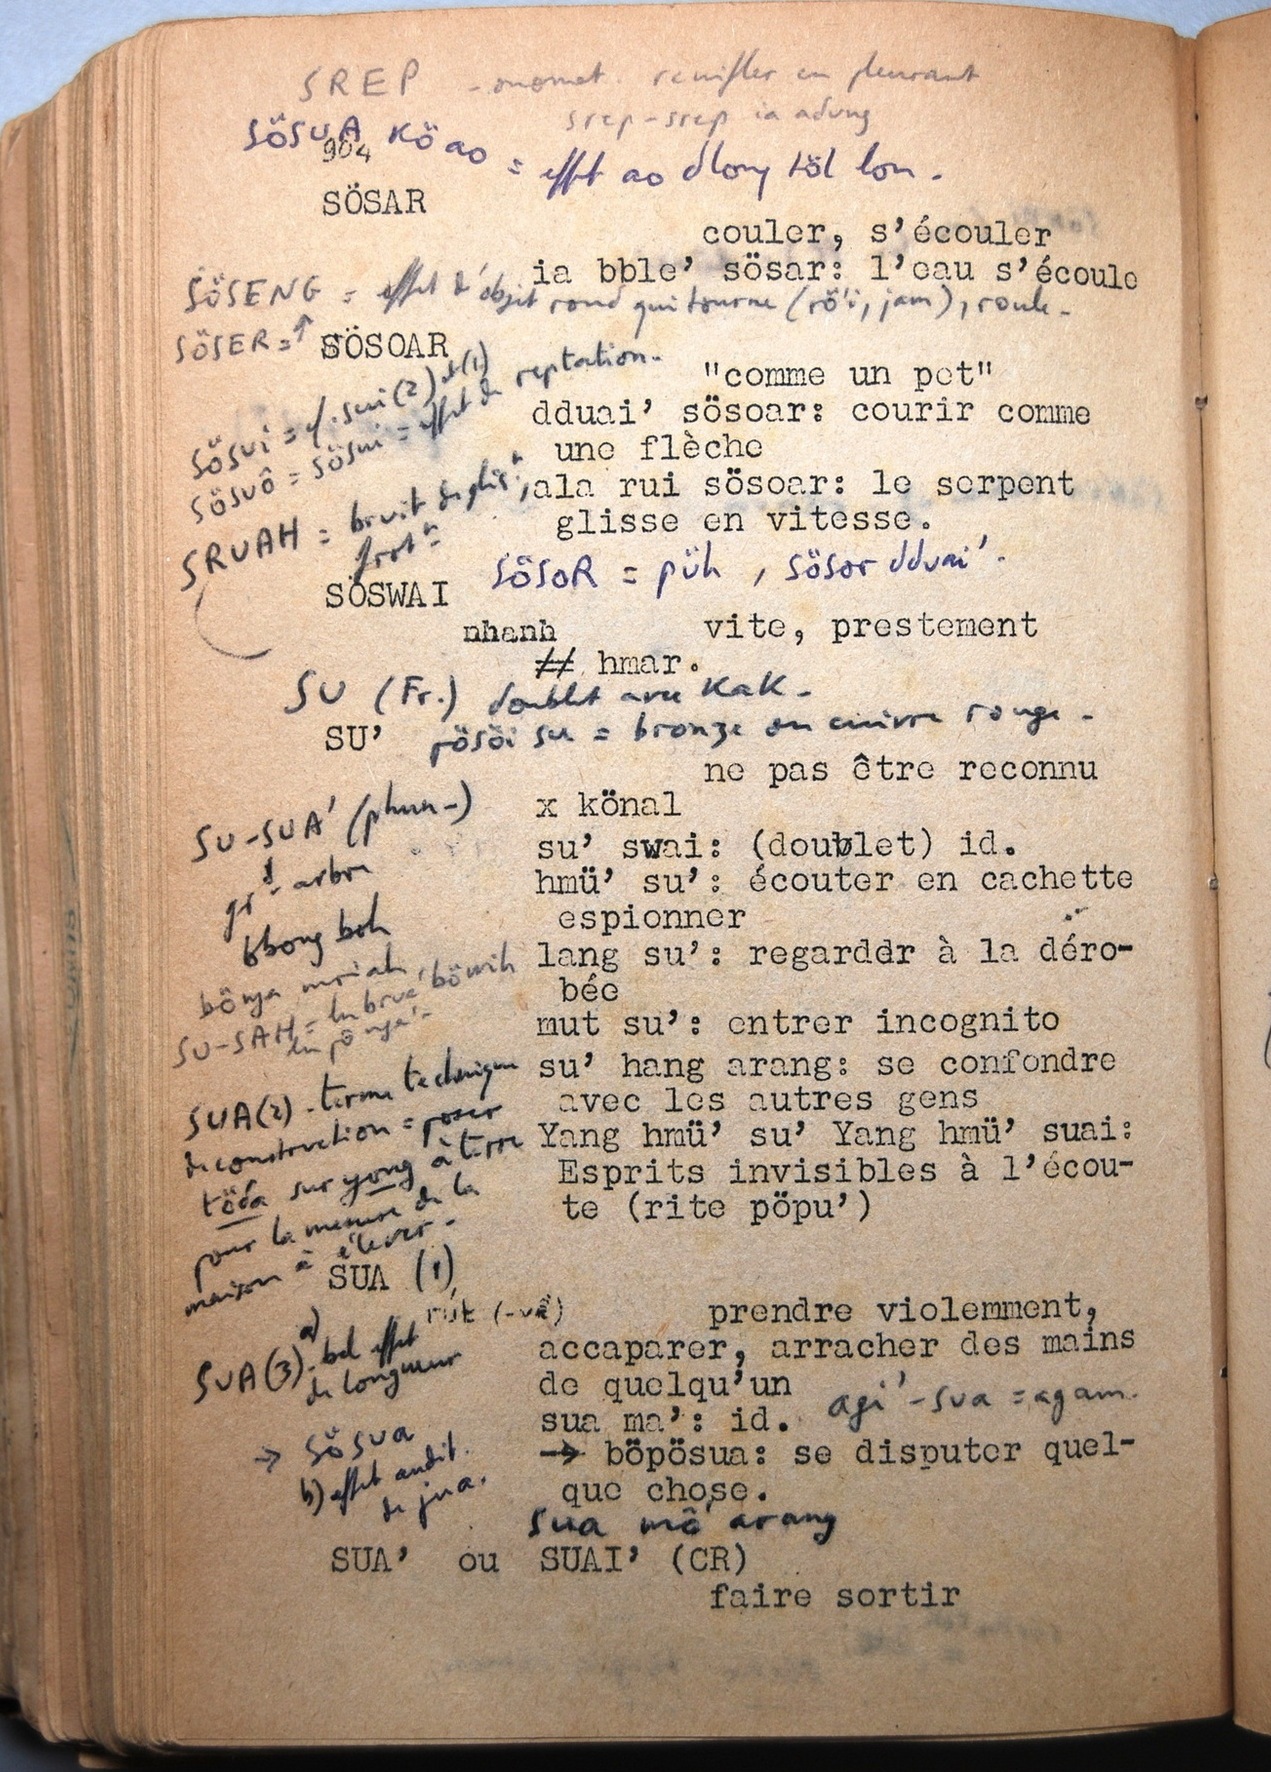 SREP - onomat. renifler en pleurant
srep-srep ia adung
SÖSUA KÖ ao = effet ao dlong töl lon.
904
SÖSAR
couler, s'écouler
ia bble' sösar: l'eau s'écoule
SÖSENG = effet d'objet rond qui tourne (rö'i, jam), roule.
SÖSER = ↑
SÖSOAR
"comme un pet"
dduai' sösoar: courir comme
une flèche
,ala rui sösoar: le serpent
glisse en vitesse.
SÖSUI = f. sui (2) et (1)
SÖSUÔ = SÖSUI = effet de reptation.
SRUAH = bruit de gliss^t,
frott^t
SÖSOR = püh, sösor dduai'.
SÖSWAI
nhanh vite, prestement
// hmar.
SU (Fr.) doublet avec KAK.
SU' pösöi su = bronze ou cuivre rouge.
ne pas être reconnu
x könal
su' swai: (doublet) id.
hmü' su': écouter en cachette
espionner
lang su': regarddr à la déro-
bée
mut su': entrer incognito
su' hang arang: se confondre
avec les autres gens
Yang hmü' su' Yang hmü' suai:
Esprits invisibles à l'écou-
te (rite pöpu')
SU-SUA' (phun-)
gr^d arbre
bbong boh
bönga moriah
SU-SAH =
SUA(2) - terme technique
de construction = poser
töda sur gong à terre
pour la mesure de la
maison à élever.
SUA (1)
rút (-vê) prendre violemment,
accaparer, arracher des mains
de quelqu'un
sua ma': id. agi'-sua = agam.
→ böpösua: se disputer quel-
que chose.
sua mô arang
SUA(3) a) - bel effet
de longueur
→ SÖSUA
b) effet audit.
de jua.
SUA' ou SUAI' (CR)
faire sortir